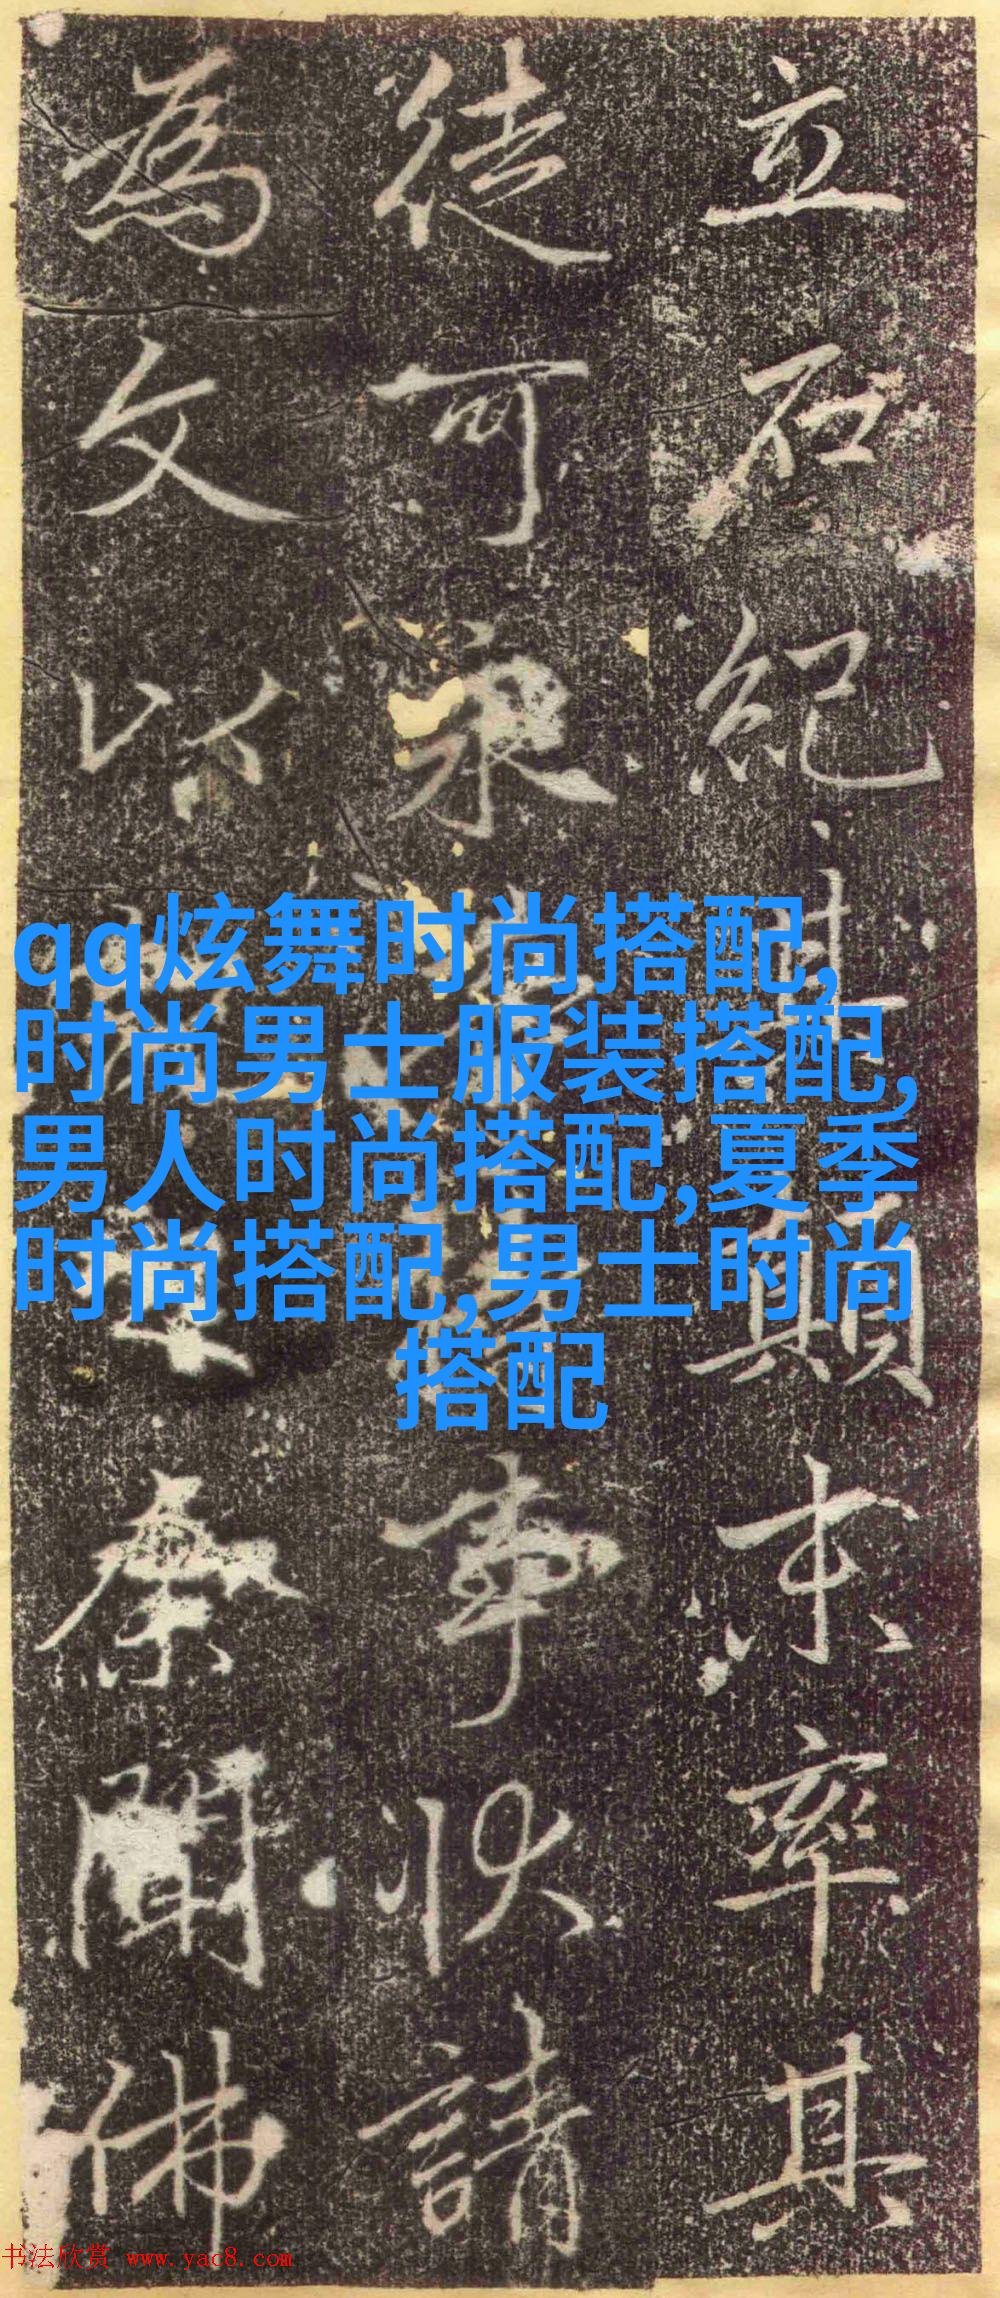 立石紀其顛末率其
徒可求事状請
為文以聞佛
qq炫舞时尚搭配,
时尚男士服装搭配,
男人时尚搭配,夏季
时尚搭配,男士时尚
搭配
书法欣赏 www.yac8.com